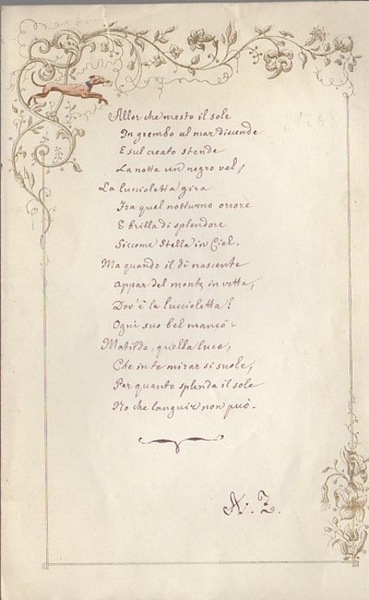 Allor che mesto il sole
In grembo al mar discende
E sul creato stende
La notte un negro vel;
La luccioletta gira
Fra quel notturno orrore
E brilla di splendore
Siccome Stella in Ciel.
Ma quando il dì nascente
Appar del monte in vetta,
Dov'è la luccioletta?
Ogni suo bel mancò =
Matilde, quella luce,
Che in te mirar si suole,
Per quanto splenda il sole
No che languir non può.
A: Z.